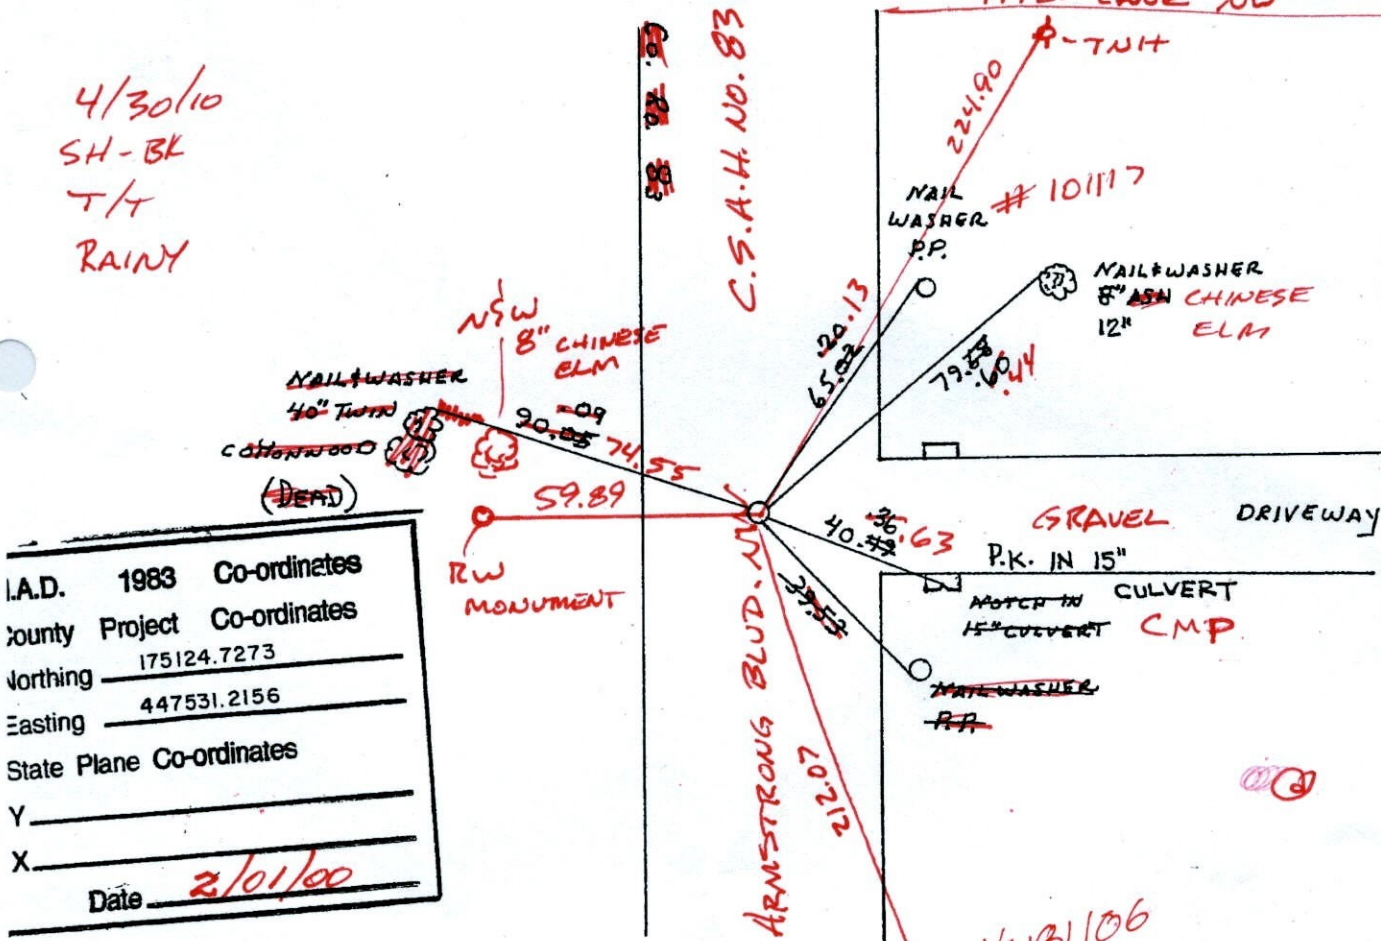 4/30/10
SH-BK
T/T
RAINY
Co. Rd. 83
C.S.A.H. NO. 83
TNH
224.90
NAIL
WASHER
P.P.
# 101117
NAIL & WASHER
8" ASH CHINESE
12" ELM
N&W
8" CHINESE
ELM
NAIL & WASHER
40" TWIN
COTTONWOOD
(DEAD)
.09
90.05 74.55
.20 .13
65.02
79.68
.60 .44
59.89
RW
MONUMENT
.36
40.49 .63
GRAVEL DRIVEWAY
P.K. IN 15"
CULVERT
NOTCH IN
15" CULVERT CMP
39.53
NAIL WASHER
P.P.
ARMSTRONG BLVD. N
212.07
.A.D. 1983 Co-ordinates
County Project Co-ordinates
Northing 175124.7273
Easting 447531.2156
State Plane Co-ordinates
Y
X
Date 2/01/00